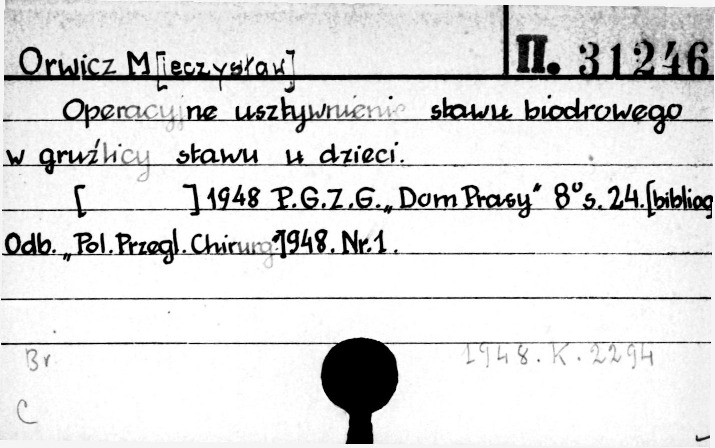 Orwicz M[ieczysław] II. 31246
Operacyjne usztywnienie stawu biodrowego
w gruźlicy stawu u dzieci.
[ ] 1948 P.G.Z.G. „Dom Prasy" 8° s. 24. [bibliog
Odb. „Pol. Przegl. Chirurg." 1948. Nr. 1.
Br 1948. K. 2294
C